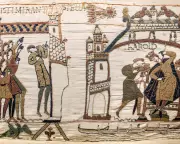 ISTI MIRANT
HAROLD